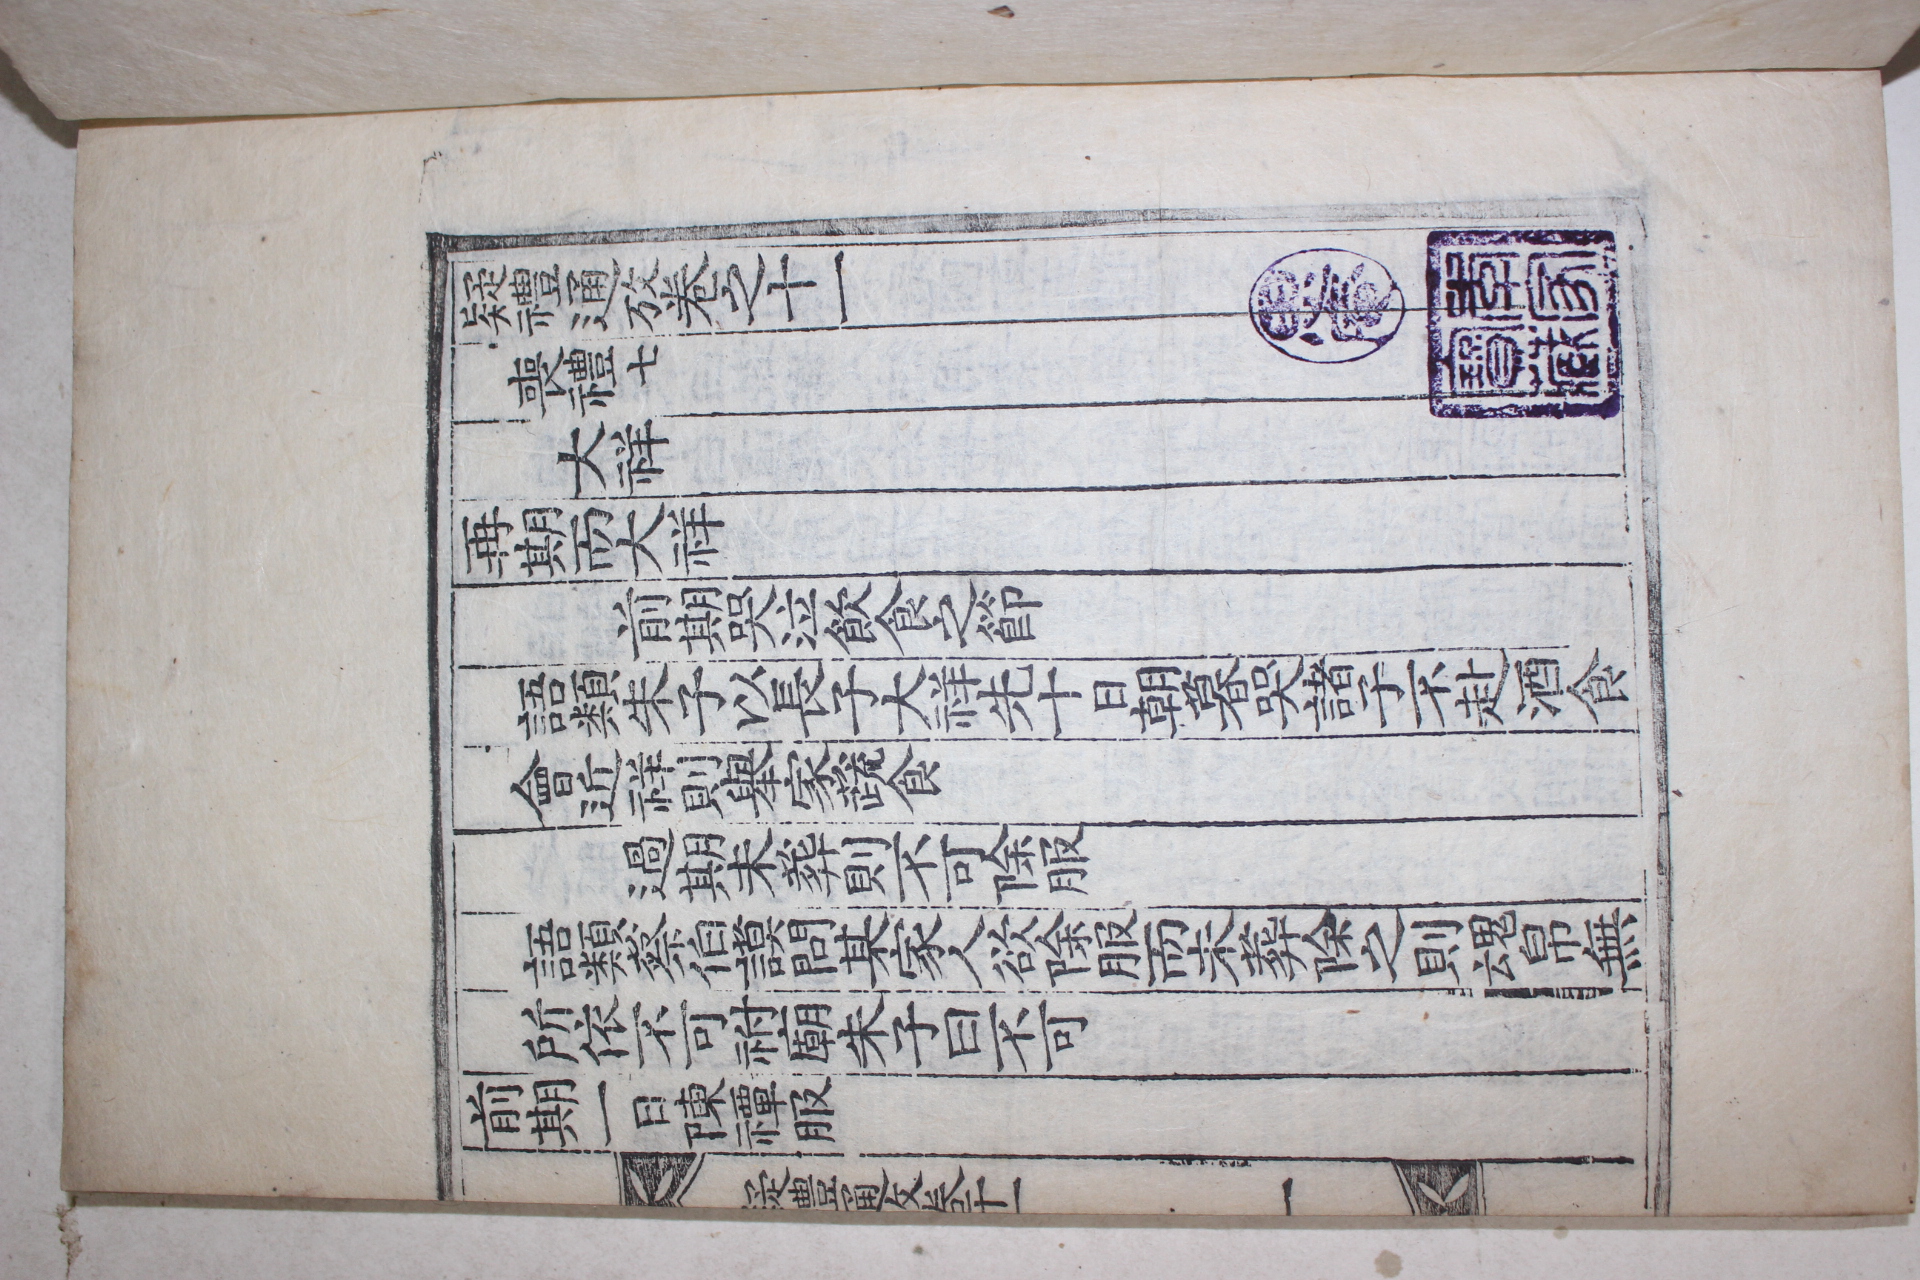 疑禮通攷卷之十一
喪禮七
大祥
再期而大祥
前期哭泣飮食之節
語類朱子以長子大祥先十日朝暮哭諸子不赴酒食
會近祥則舉家蔬食
過期未葬則不可除服
語類蔡伯謨問某家人欲除服而未葬除之則魂帛無
所依不可祔廟朱子曰不可
前期一日陳禫服
疑禮通攷卷十一
一
李家
寶藏
思庵